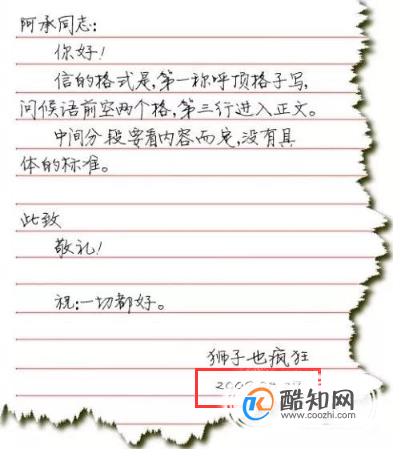 阿承同志:
你好!
信的格式是,第一称呼顶格子写,
问候语前空两个格,第三行进入正文。
中间分段要看内容而定,没有具
体的标准。
此致
敬礼!
祝:一切都好。
狮子也疯狂
酷知网
www.coozhi.com